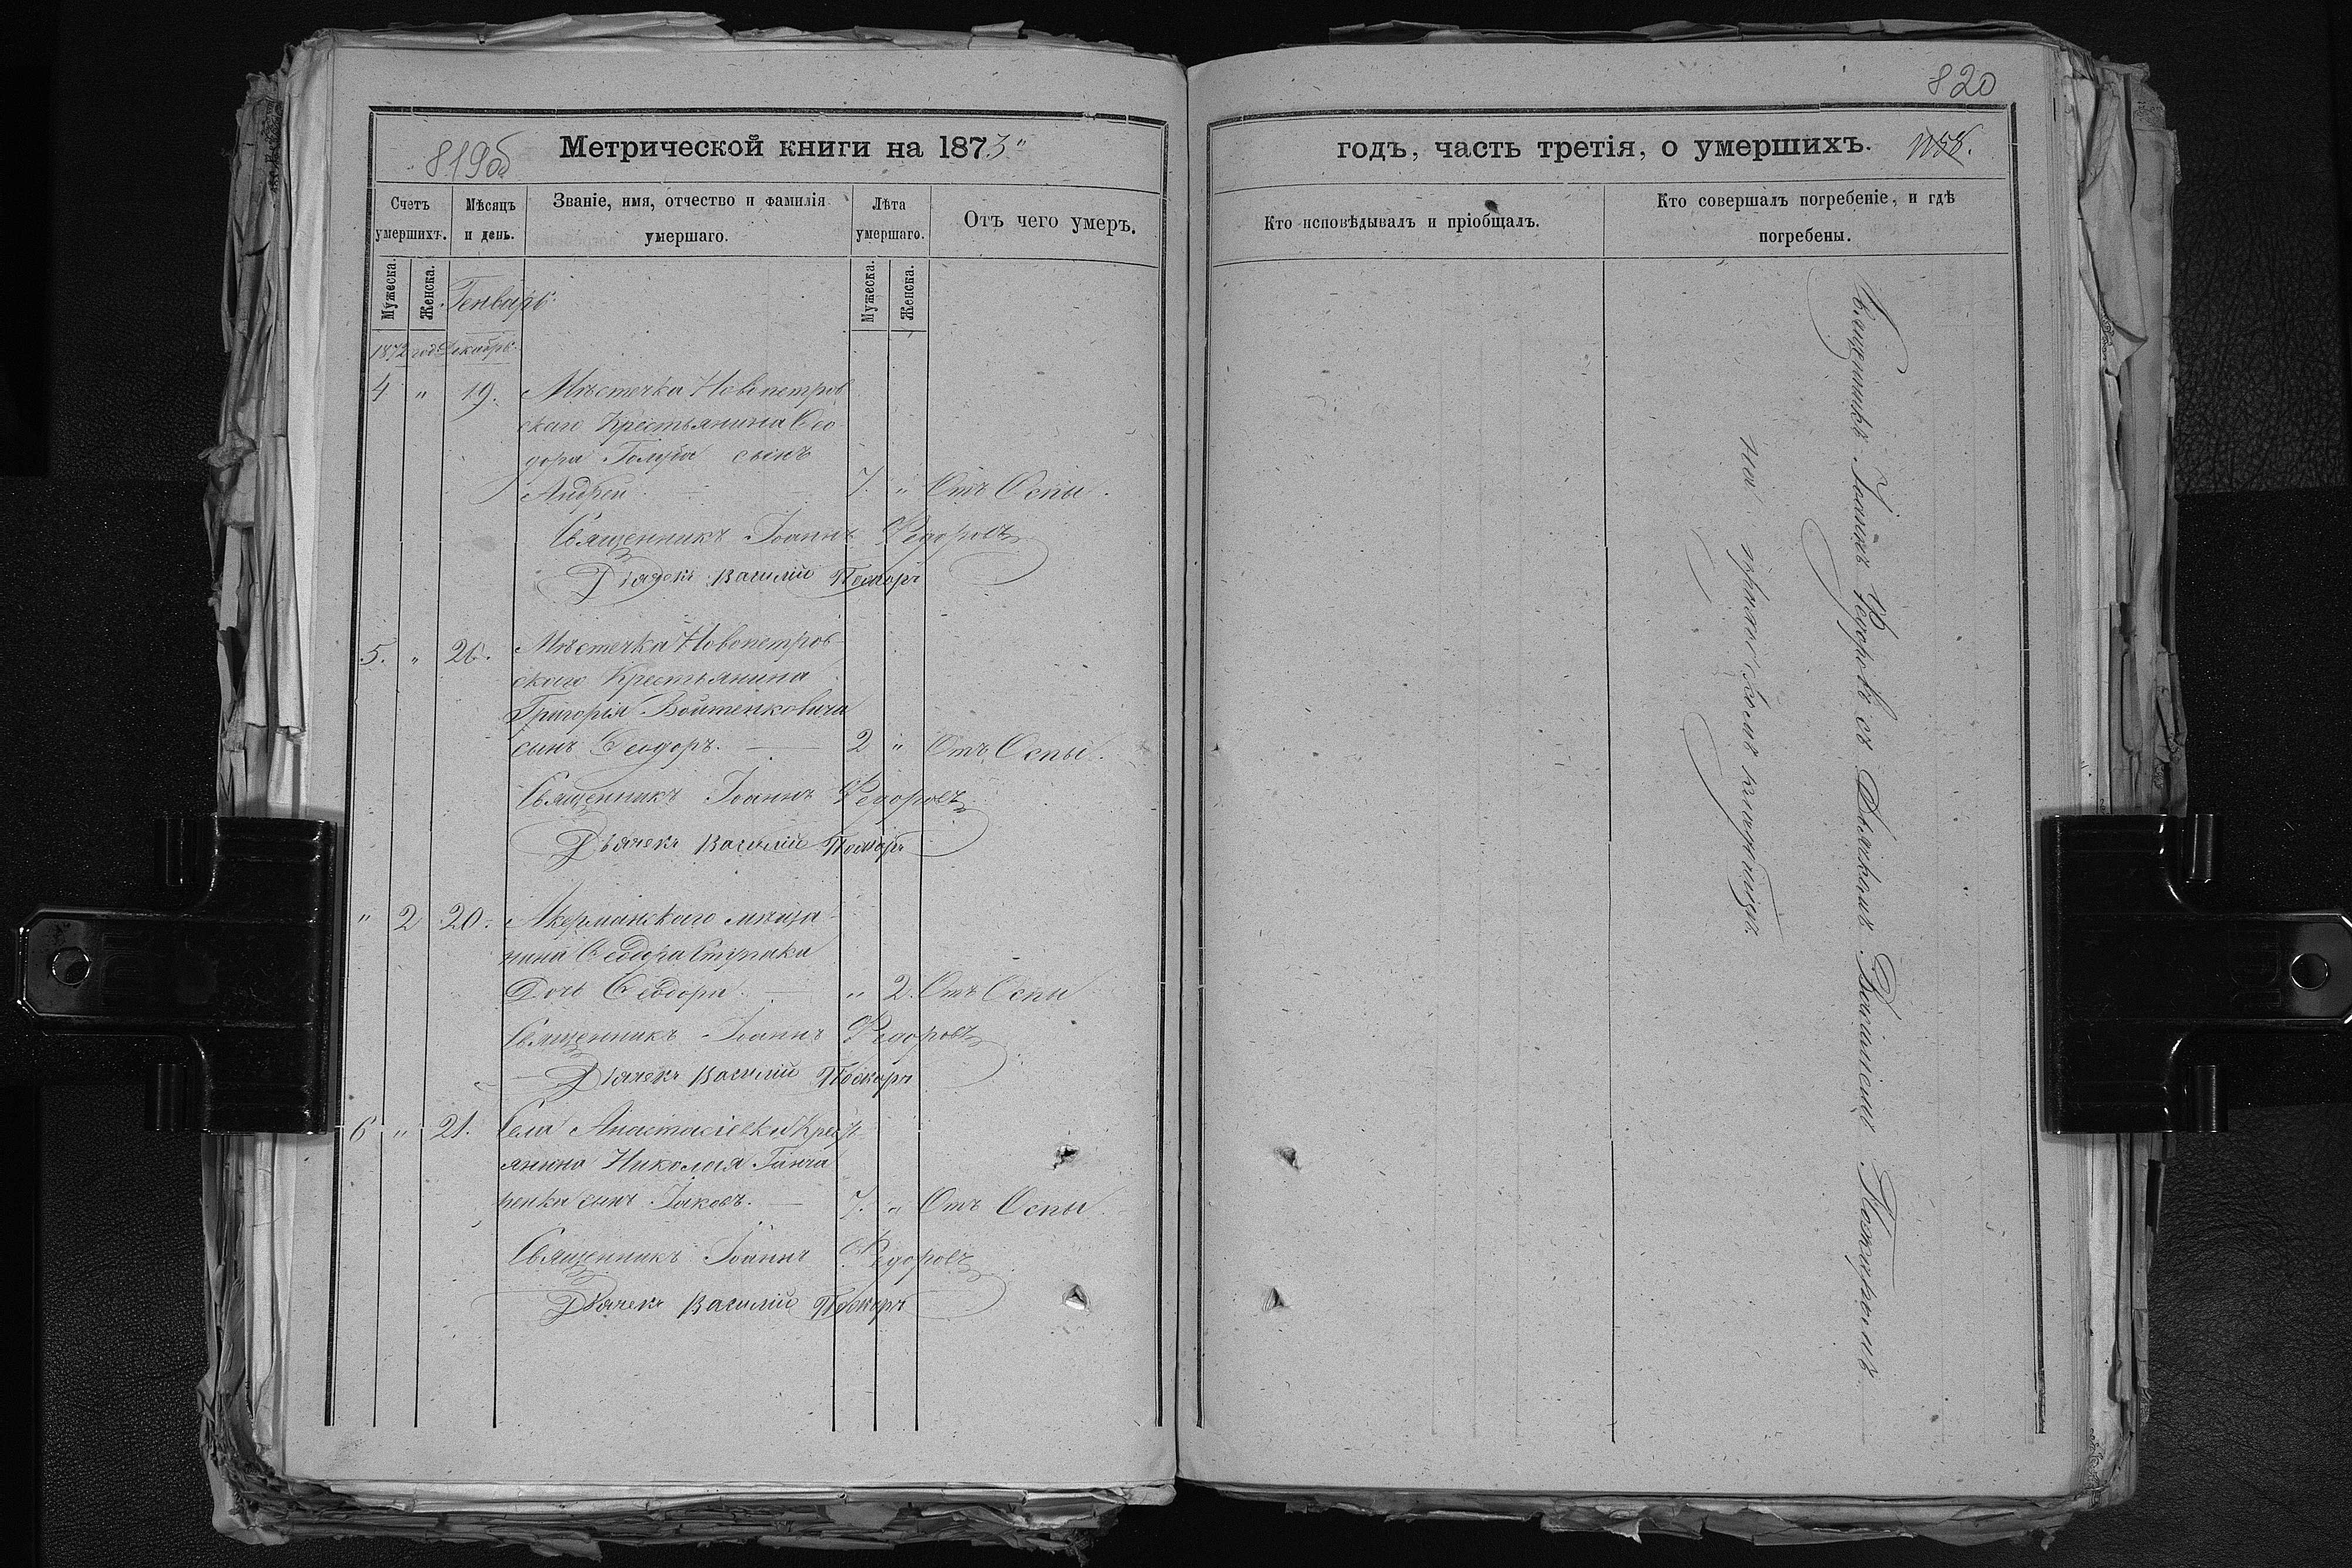 819об
Метрической книги на 1873"
Счетъ умершихъ.
Мѣсяцъ и день.
Званіе, имя, отчество и фамилія умершаго.
Лѣта умершаго.
Отъ чего умеръ.
Мужеска.
Женска.
Генварь.
Мужеска.
Женска.
1872 год Декабрь.
4 " 19. Мѣстечка Новопетров
скаго Крестьянина Ѳео
дора Голуба сынъ
Андрей. — 7. " Отъ Оспы.
Священникъ Іоаннъ Федоровъ
Дьячекъ Василій
5. " 26. Мѣстечка Новопетров
скаго Крестьянина
Григорія Войтенковича
сынъ Ѳеодоръ. — 2 " Отъ Оспы.
Священникъ Іоаннъ Федоровъ
Дьячекъ Василій
" 2 20. Акерманскаго мѣща
нина Ѳеодора
Дочь Ѳеодора. — " 2. Отъ Оспы
Священникъ Іоаннъ Федоровъ
Дьячекъ Василій
6 " 21. Села Анастасіевки Крест
янина Николая Ганча
ренка сынъ Іаковъ. — 7. " Отъ Оспы.
Священникъ Іоаннъ Федоровъ
Дьячекъ Василій
820
годъ, часть третія, о умершихъ.
Кто исповѣдывалъ и пріобщалъ.
Кто совершалъ погребеніе, и гдѣ
погребены.
Священникъ Іоаннъ Федоровъ съ Дьячкомъ Василіемъ
на приходскомъ кладбищѣ.